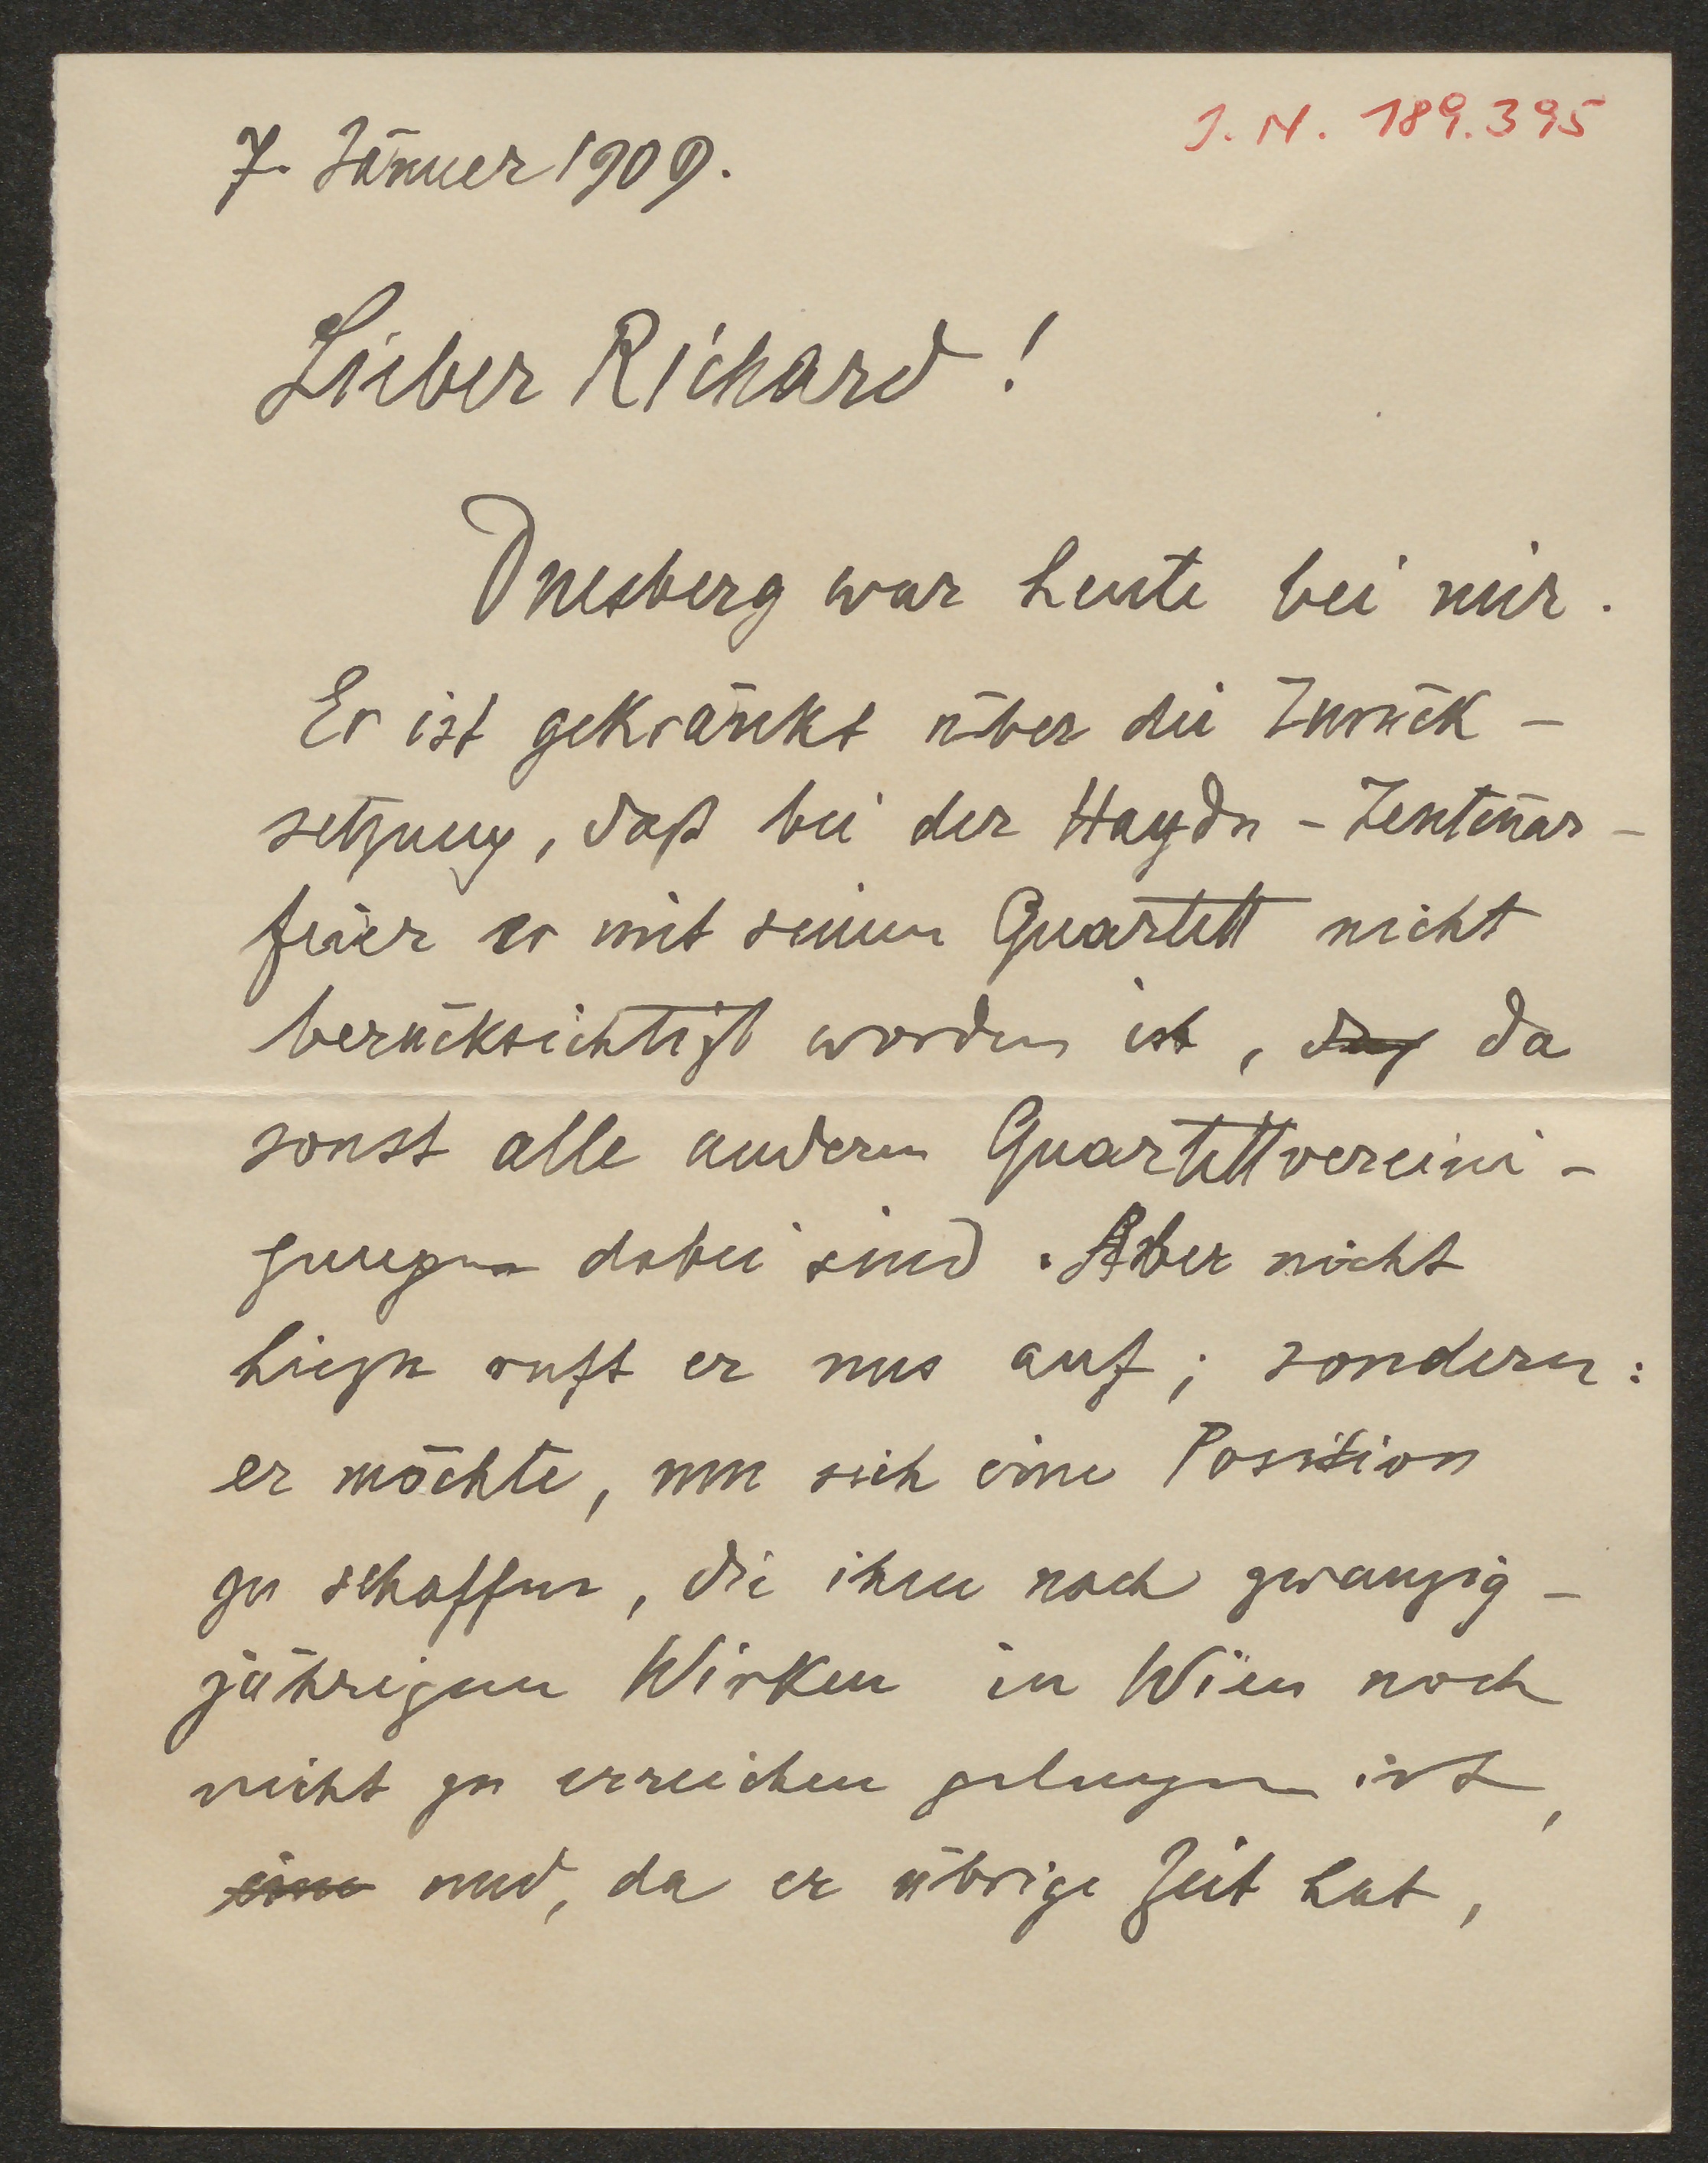 J. N. 189.395
7. Jänner 1909.
Lieber Richard!
Duesberg war heute bei mir.
Er ist gekränkt über die Zurück-
setzung, daß bei der Haydn-Zentenar-
feier er mit seinem Quartett nicht
berücksichtigt worden ist, daß da
sonst alle anderen Quartettvereini-
gungen dabei sind. Aber nicht
hiezu ruft er uns auf; sondern:
er möchte, um sich eine Position
zu schaffen, die ihm nach zwanzig-
jährigem Wirken in Wien noch
nicht zu erreichen gelungen ist,
eine und, da er übrige Zeit hat,